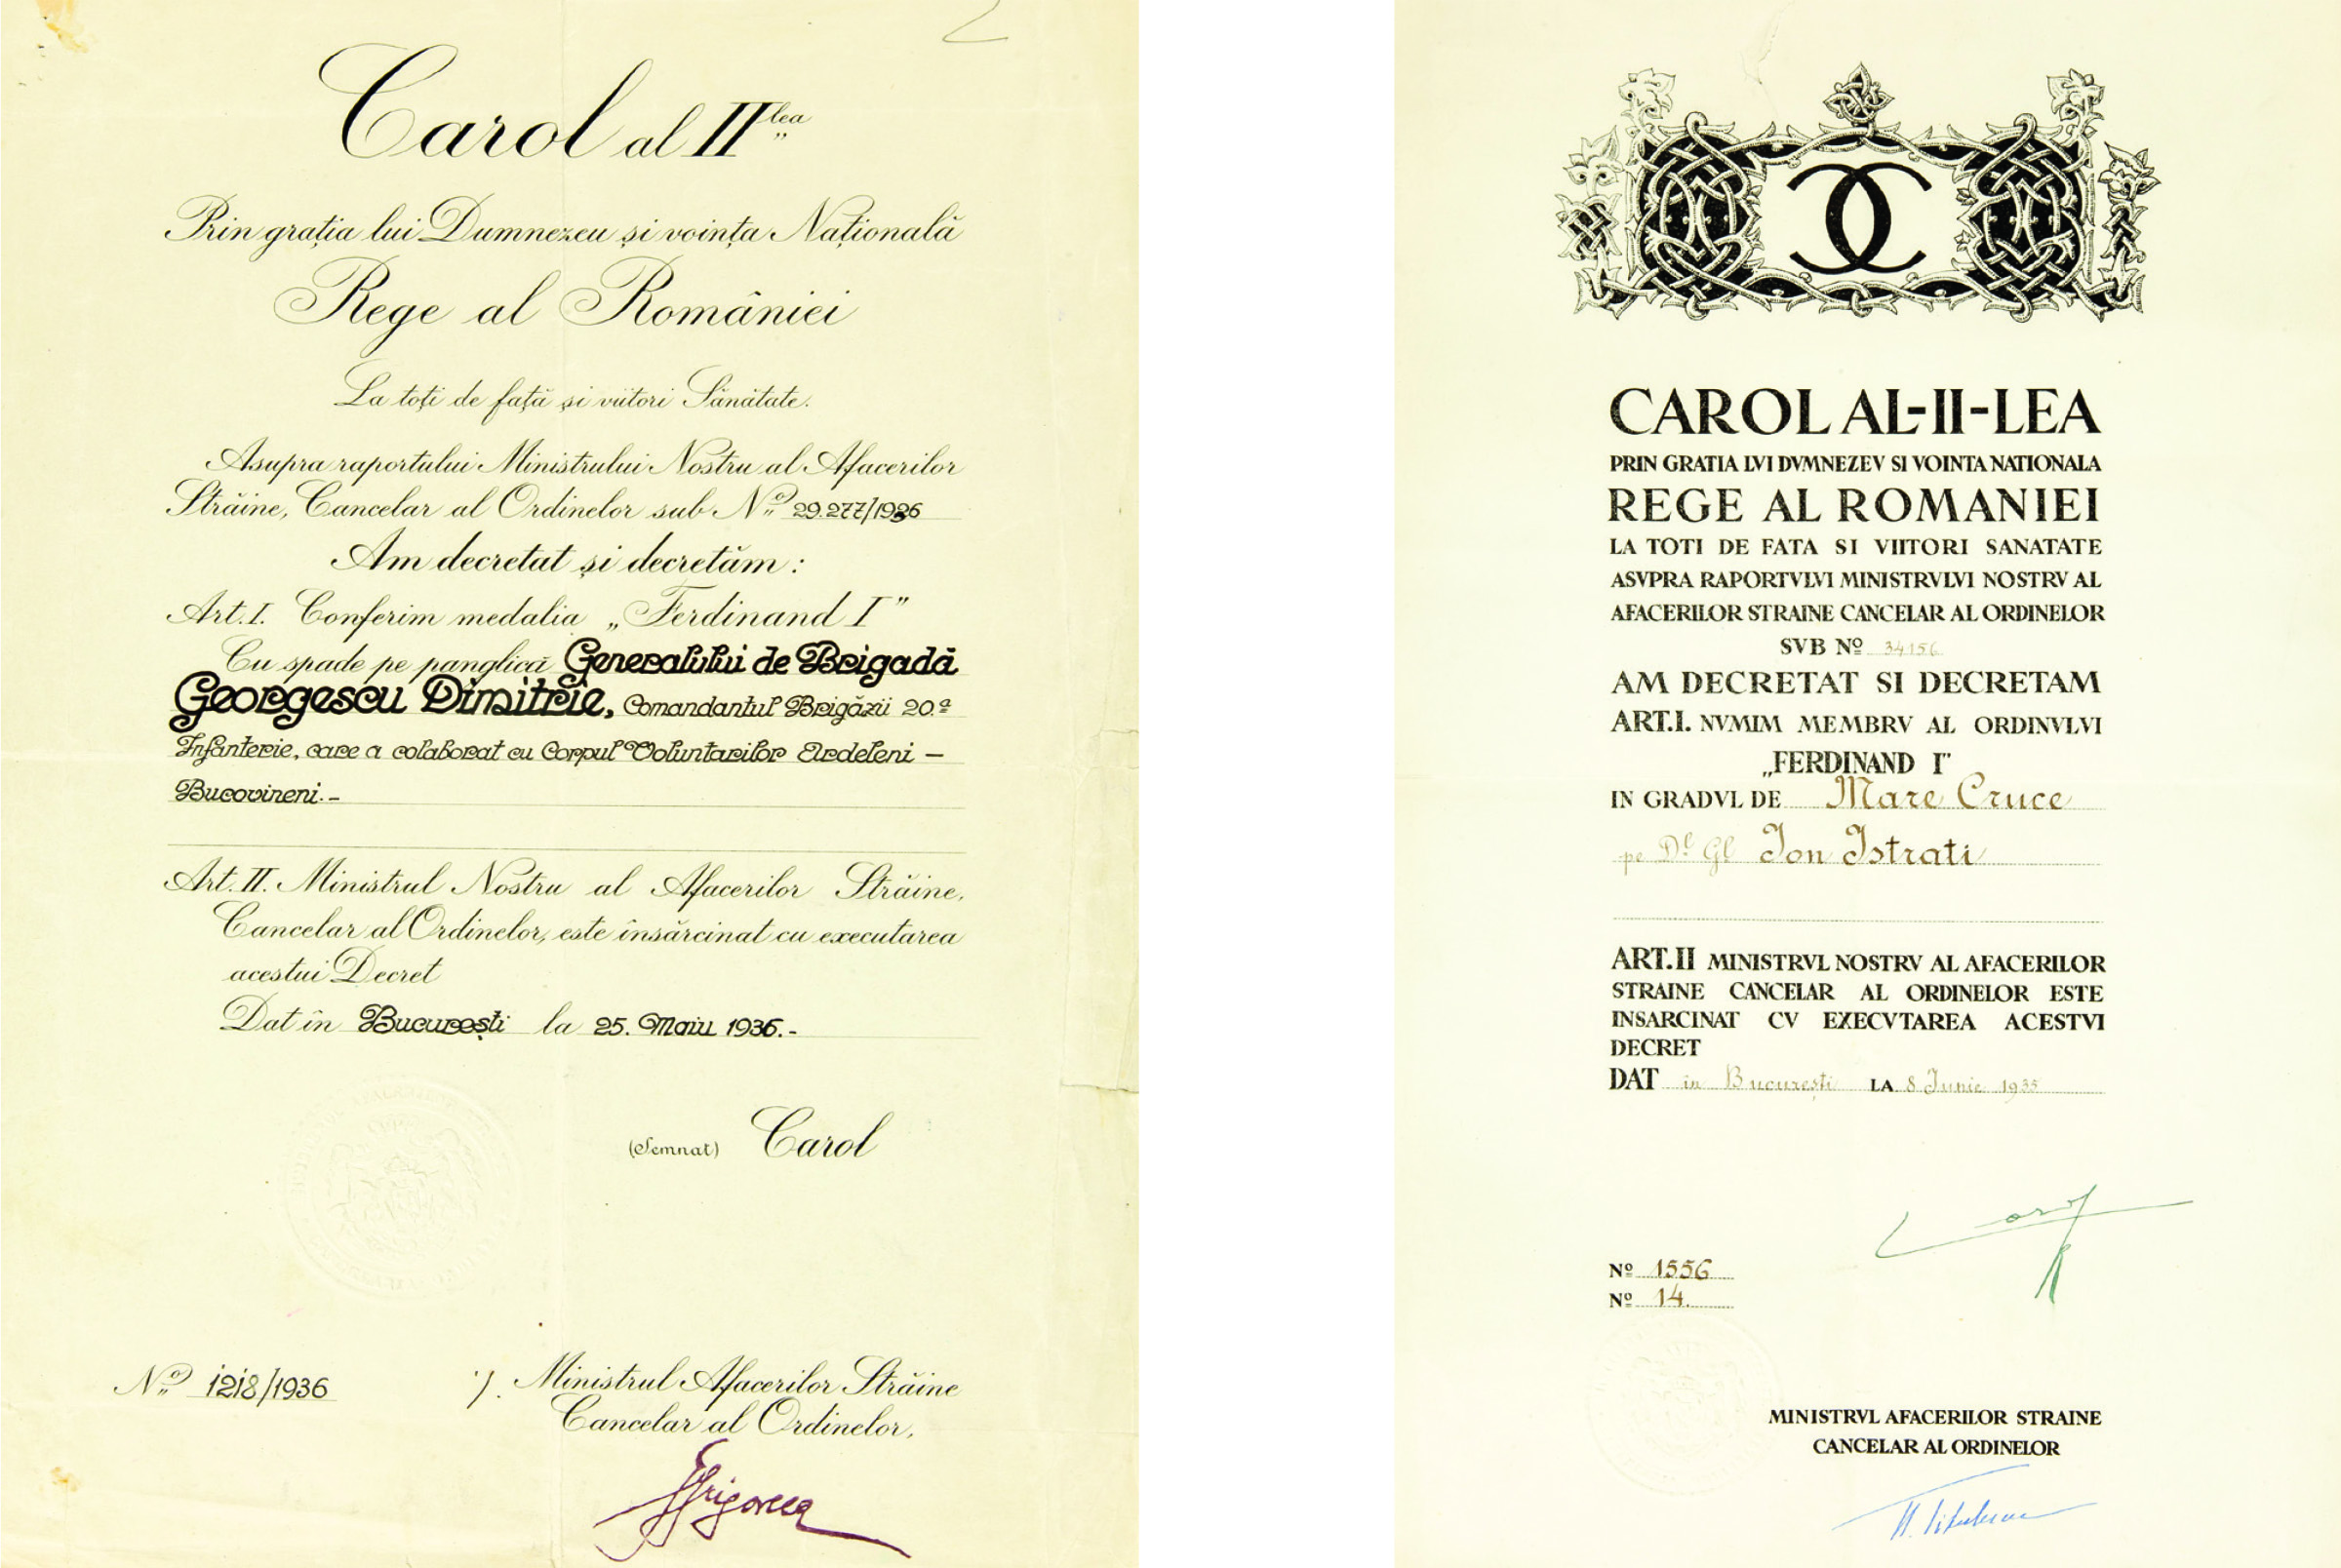 Carol al II lea
Prin grația lui Dumnezeu și voința Națională
Rege al României
La toți de față și viitori Sănătate.
Asupra raportului Ministrului Nostru al Afacerilor
Străine, Cancelar al Ordinelor sub Nº 29.277/1936
Am decretat și decretăm :
Art. I. Conferim medalia „Ferdinand I”
Cu spade pe panglică Generalului de Brigadă
Georgescu Dimitrie, Comandantul Brigăzii 20.a
Infanterie, care a colaborat cu Corpul Voluntarilor Ardeleni –
Bucovineni.-
Art. II. Ministrul Nostru al Afacerilor Străine,
Cancelar al Ordinelor, este însărcinat cu executarea
acestui Decret
Dat în București la 25. Maiu 1936.-
(Semnat) Carol
Nº 1218/1936
Ministrul Afacerilor Străine
Cancelar al Ordinelor,
CAROL AL-II-LEA
PRIN GRATIA LVI DVMNEZEV SI VOINTA NATIONALA
REGE AL ROMANIEI
LA TOTI DE FATA SI VIITORI SANATATE
ASVPRA RAPORTVLVI MINISTRVLVI NOSTRV AL
AFACERILOR STRAINE CANCELAR AL ORDINELOR
SVB Nº 34156
AM DECRETAT SI DECRETAM
ART.I. NVMIM MEMBRV AL ORDINVLVI
„FERDINAND I”
IN GRADVL DE Mare Cruce
pe Dl Gl Ion Istrati
ART.II MINISTRVL NOSTRV AL AFACERILOR
STRAINE CANCELAR AL ORDINELOR ESTE
INSARCINAT CV EXECVTAREA ACESTVI
DECRET
DAT in București LA 8 Iunie 1935
Carol
Nº 1556
Nº 14.
MINISTRVL AFACERILOR STRAINE
CANCELAR AL ORDINELOR
N. Titulescu